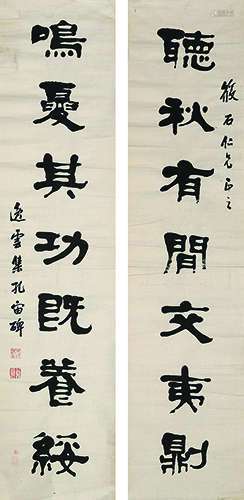 筱石仁兄正之
聽秋有閒交夷鼎
鳴憂其功既養綏
逸雲集孔宙碑